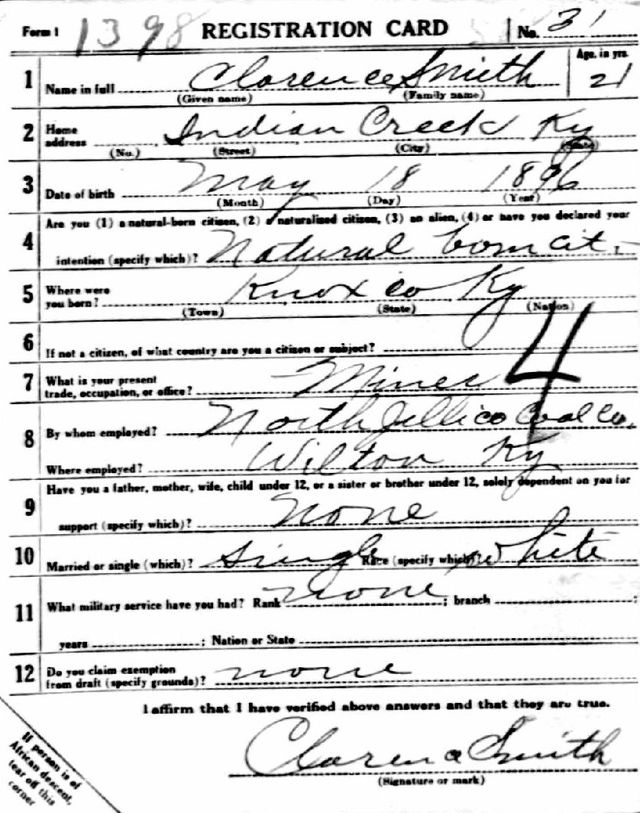 Form 1 1398 REGISTRATION CARD No. 31
1 Name in full Clarence Smith Age, in yrs. 21
(Given name) (Family name)
2 Home address Indian Creek Ky
(No.) (Street) (City) (State)
3 Date of birth May 18 1896
(Month) (Day) (Year)
4 Are you (1) a natural-born citizen, (2) a naturalized citizen, (3) an alien, (4) or have you declared your
intention (specify which)? Natural born cit.
5 Where were you born? Knox co Ky
(Town) (State) (Nation)
6 If not a citizen, of what country are you a citizen or subject?
7 What is your present trade, occupation, or office? Miner 4
8 By whom employed? North Jellico Coal Co.
Where employed? Wilton Ky
9 Have you a father, mother, wife, child under 12, or a sister or brother under 12, solely dependent on you for
support (specify which)? None
10 Married or single (which)? Single Race (specify which)? White
11 What military service have you had? Rank none ; branch ;
years ; Nation or State
12 Do you claim exemption from draft (specify grounds)? none
I affirm that I have verified above answers and that they are true.
Clarence Smith
(Signature or mark)
If person is of
African descent,
tear off this
corner